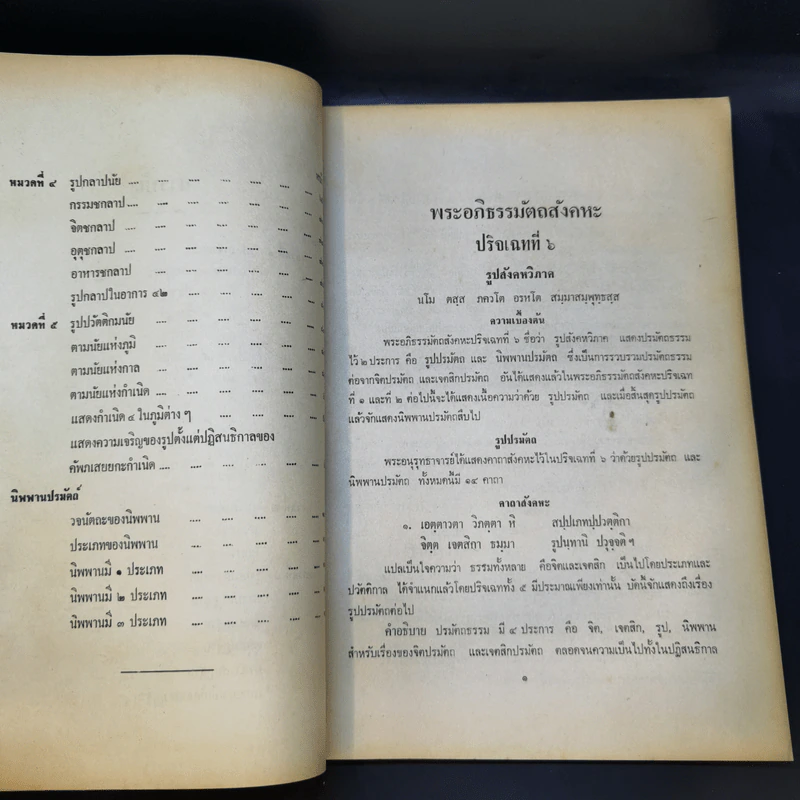 หมวดที่ ๔ รูปกลาปนัย .... .... .... .... .... ....
กรรมชกลาป .... .... .... .... .... ....
จิตชกลาป .... .... .... .... .... ....
อุตุชกลาป .... .... .... .... .... ....
อาหารชกลาป .... .... .... .... ....
รูปกลาปในอาการ ๔๒ .... .... .... ....
หมวดที่ ๕ รูปปวัตติกมนัย .... .... .... .... ....
ตามนัยแห่งภูมิ .... .... .... .... ....
ตามนัยแห่งกาล .... .... .... .... ....
ตามนัยแห่งกำเนิด .... .... .... .... ....
แสดงกำเนิด ๔ ในภูมิต่าง ๆ .... .... .... ....
แสดงความเจริญของรูปตั้งแต่ปฏิสนธิกาลของ
คัพภเสยยกะกำเนิด .... .... .... .... ....
นิพพานปรมัตถ์
วจนัตถะของนิพพาน .... .... .... ....
ประเภทของนิพพาน .... .... .... ....
นิพพานมี ๑ ประเภท .... .... .... ....
นิพพานมี ๒ ประเภท .... .... .... ....
นิพพานมี ๓ ประเภท .... .... .... ....
พระอภิธรรมัตถสังคหะ
ปริจเฉทที่ ๖
รูปสังคหวิภาค
นโม ตสฺส ภควโต อรหโต สมฺมาสมฺพุทฺธสฺส
ความเบื้องต้น
พระอภิธรรมัตถสังคหะปริจเฉทที่ ๖ ชื่อว่า รูปสังคหวิภาค แสดงปรมัตถธรรม
ไว้ ๒ ประการ คือ รูปปรมัตถ และ นิพพานปรมัตถ ซึ่งเป็นการรวบรวมปรมัตถธรรม
ต่อจากจิตปรมัตถ และเจตสิกปรมัตถ อันได้แสดงแล้วในพระอภิธรรมัตถสังคหะปริจเฉท
ที่ ๑ และที่ ๒ ต่อไปนี้จะได้แสดงเนื้อความว่าด้วย รูปปรมัตถ และเมื่อสิ้นสุดรูปปรมัตถ
แล้วจักแสดงนิพพานปรมัตถสืบไป
รูปปรมัตถ
พระอนุรุทธาจารย์ได้แสดงคาถาสังคหะไว้ในปริจเฉทที่ ๖ ว่าด้วยรูปปรมัตถ และ
นิพพานปรมัตถ ทั้งหมดนี้มี ๑๔ คาถา
คาถาสังคหะ
๑. เอตฺตาวตา วิภตฺตา หิ สปฺปเภทปฺปวตฺติกา
จิตฺต เจตสิกา ธมฺมา รูปนฺทานิ ปวุจฺจติ ฯ
แปลเป็นใจความว่า ธรรมทั้งหลาย คือจิตและเจตสิก เป็นไปโดยประเภทและ
ปวัตติกาล ได้จำแนกแล้วโดยปริจเฉททั้ง ๕ มีประมาณเพียงเท่านั้น บัดนี้จักแสดงถึงเรื่อง
รูปปรมัตถต่อไป
คำอธิบาย ปรมัตถธรรม มี ๔ ประการ คือ จิต, เจตสิก, รูป, นิพพาน
สำหรับเรื่องของจิตปรมัตถ และเจตสิกปรมัตถ ตลอดจนความเป็นไปทั้งในปฏิสนธิกาล
๑